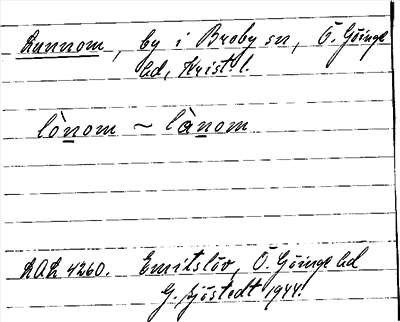 Lunnom, by i Broby sn, Ö. Göinge
hd, Krist. l.
lònom ~ lànom
LAL 4260. Emitslöv, Ö. Göinge hd
G. Sjöstedt 1944.